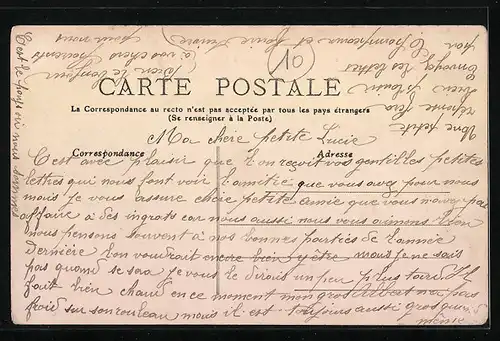 10
CARTE POSTALE
La Correspondance au recto n'est pas acceptée par tous les pays étrangers
(Se renseigner à la Poste)
Correspondance
Adresse
Ma chère petite Lucie
C'est avec plaisir que l'on reçoit vos gentilles petites
lettres qui nous font voir l'amitié que vous avez pour nous
mais je vous assure chère petite amie que vous n'avez pas
affaire à des ingrats car nous aussi nous vous aimons bien
nous pensons souvent à nos bonnes parties de l'année
dernière l'on voudrait encore bien y être mais je ne sais
pas quand se sera je vous le dirais un peu plus tard il
fait bien chaud en ce moment mon gros Albert n'a pas
froid sur son rouleau mais il est toujours aussi gros quand
même
Une petite
réponse fera
bien plaisir
Envoyez les lettres
par Champ et bonne
à vos chers parents
bien le bonjour
pour nous
C'est le pays où nous sommes